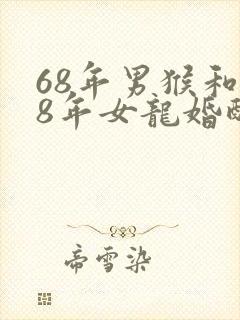 68年男猴和
8年女龍婚配
帝雪染